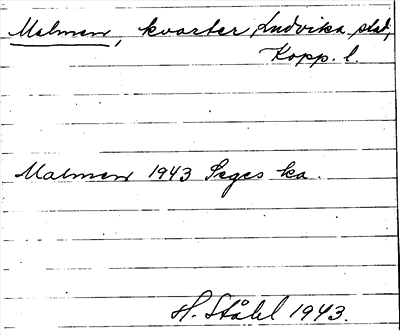 Malmen, kvarter Ludvika stad,
Kopp. l.
Malmen 1943 Seges ka.
H. Ståhl 1943.